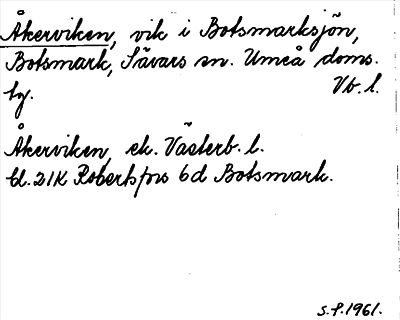 Åkerviken, vik i Botsmarksjön,
Botsmark, Sävars sn. Umeå doms.
hg. Vb. l.
Åkerviken, ek. Västerb. l.
bl. 21K Robertsfors 6d Botsmark.
S.F. 1961.